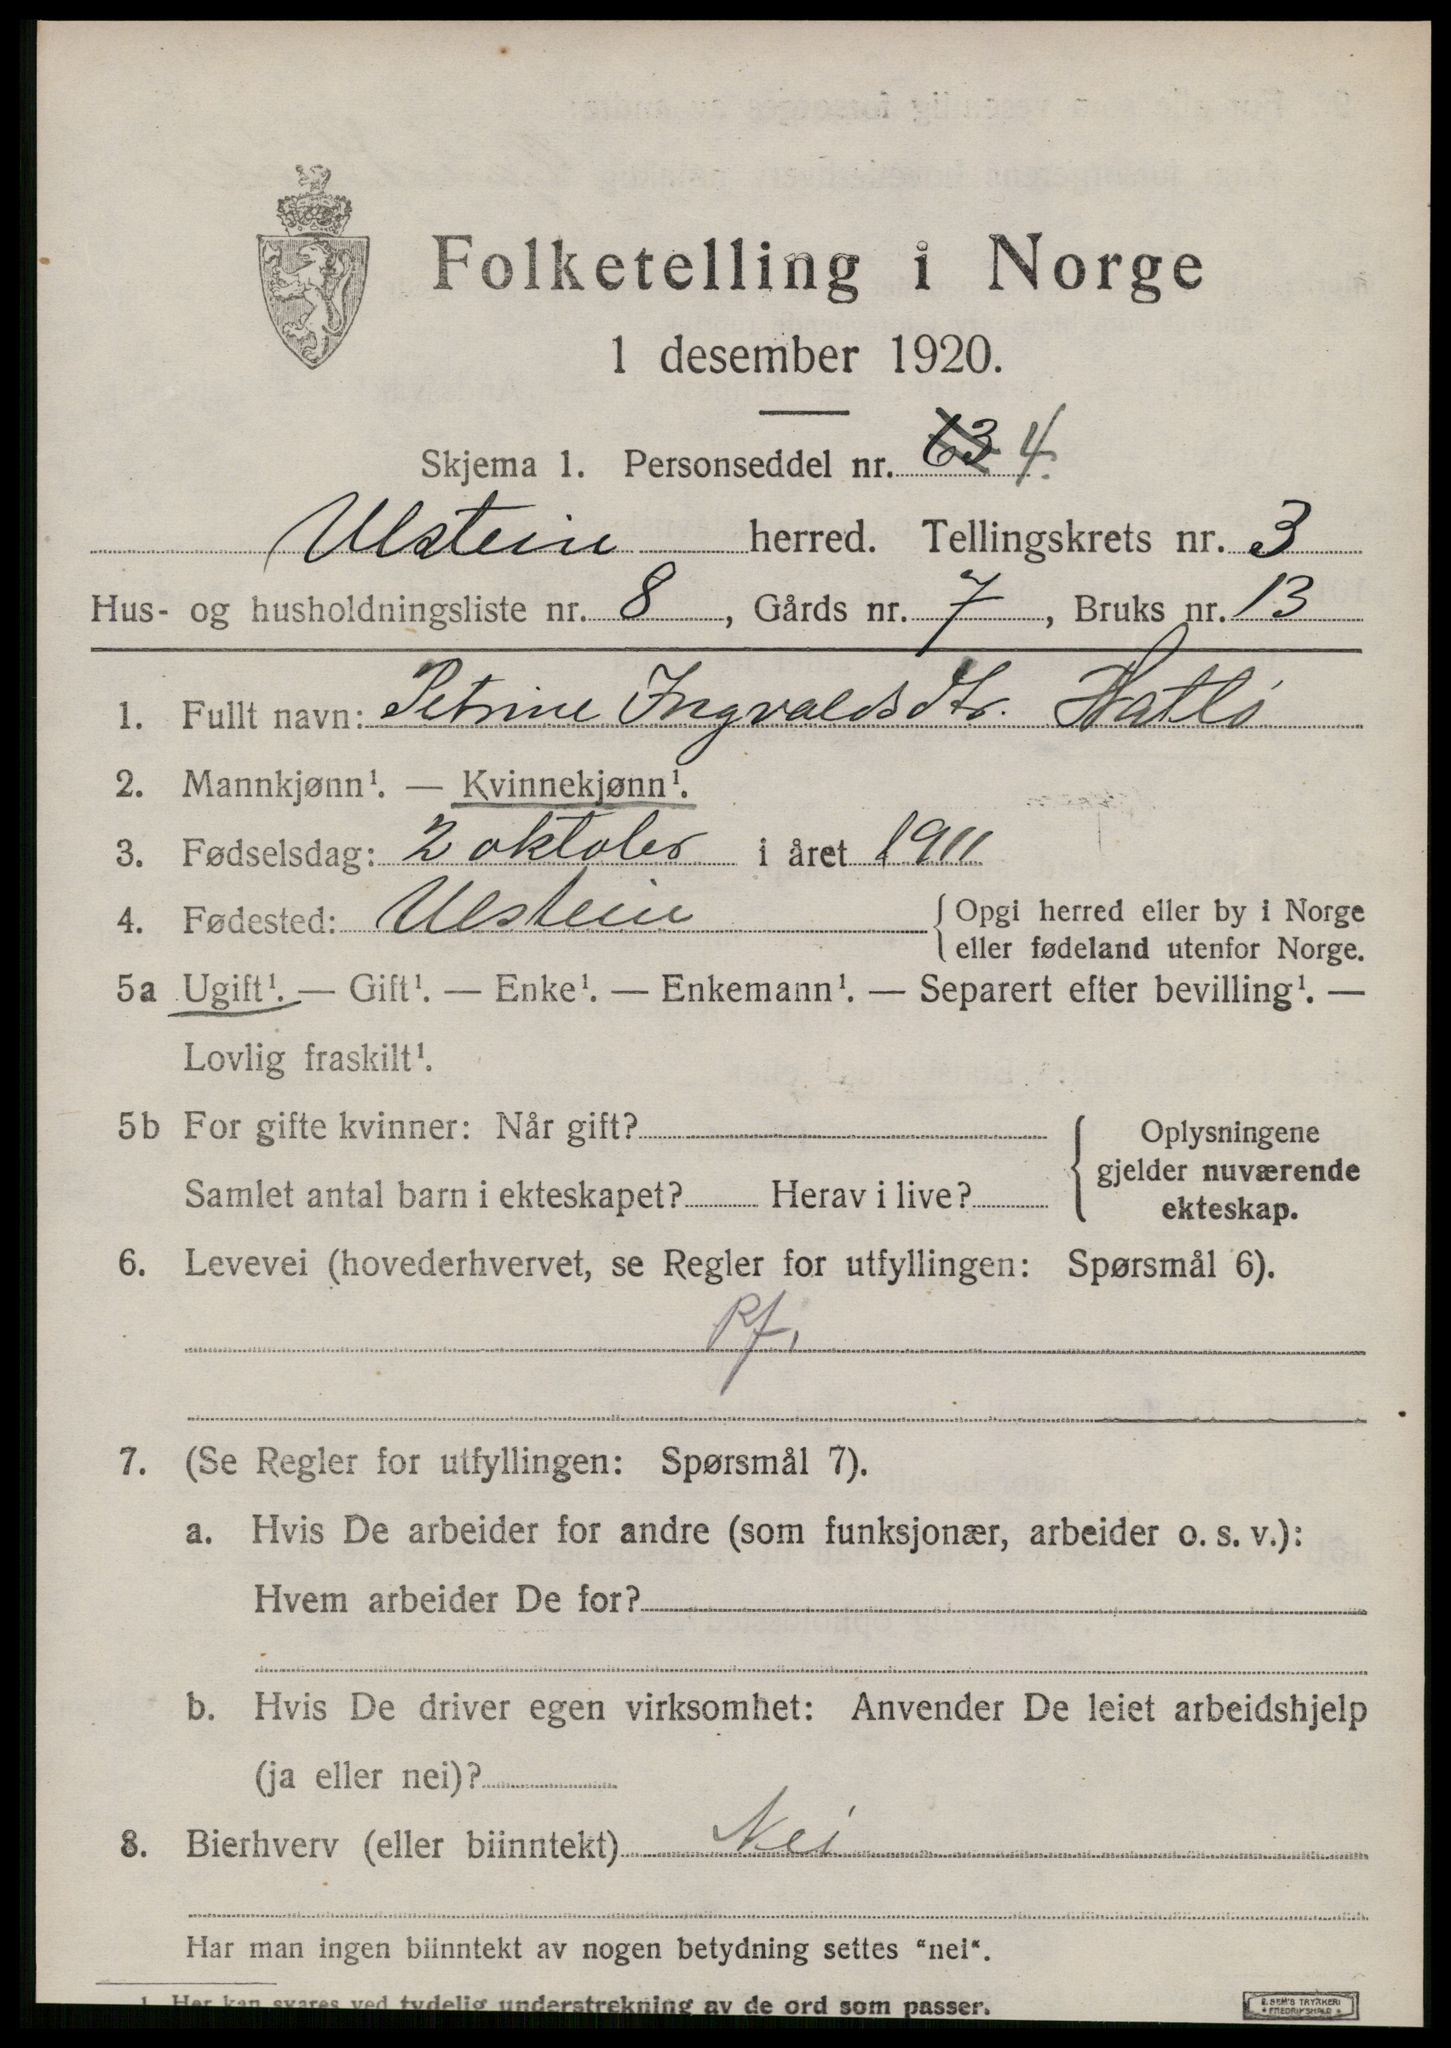 Folketelling i Norge
1 desember 1920.
Skjema 1. Personseddel nr. 63 4.
Ulstein herred. Tellingskrets nr. 3
Hus- og husholdningsliste nr. 8, Gårds nr. 7, Bruks nr. 13
1. Fullt navn: Petrine Ingvaldsdtr. Hatlø
2. Mannkjønn¹. — Kvinnekjønn¹.
3. Fødselsdag: 2 oktober i året 1911
4. Fødested: Ulstein { Opgi herred eller by i Norge
eller fødeland utenfor Norge.
5a Ugift¹. — Gift¹. — Enke¹. — Enkemann¹. — Separert efter bevilling¹. —
Lovlig fraskilt¹.
5b For gifte kvinner: Når gift?
Samlet antal barn i ekteskapet? Herav i live?
{ Oplysningene
gjelder nuværende
ekteskap.
6. Levevei (hovederhvervet, se Regler for utfyllingen: Spørsmål 6).
Pf,
7. (Se Regler for utfyllingen: Spørsmål 7).
a. Hvis De arbeider for andre (som funksjonær, arbeider o. s. v.):
Hvem arbeider De for?
b. Hvis De driver egen virksomhet: Anvender De leiet arbeidshjelp
(ja eller nei)?
8. Bierhverv (eller biinntekt) Nei
Har man ingen biinntekt av nogen betydning settes "nei".
1 Her kan svares ved tydelig understrekning av de ord som passer.
E. SEM'S TRYKKERI
FREDRIKSHALD